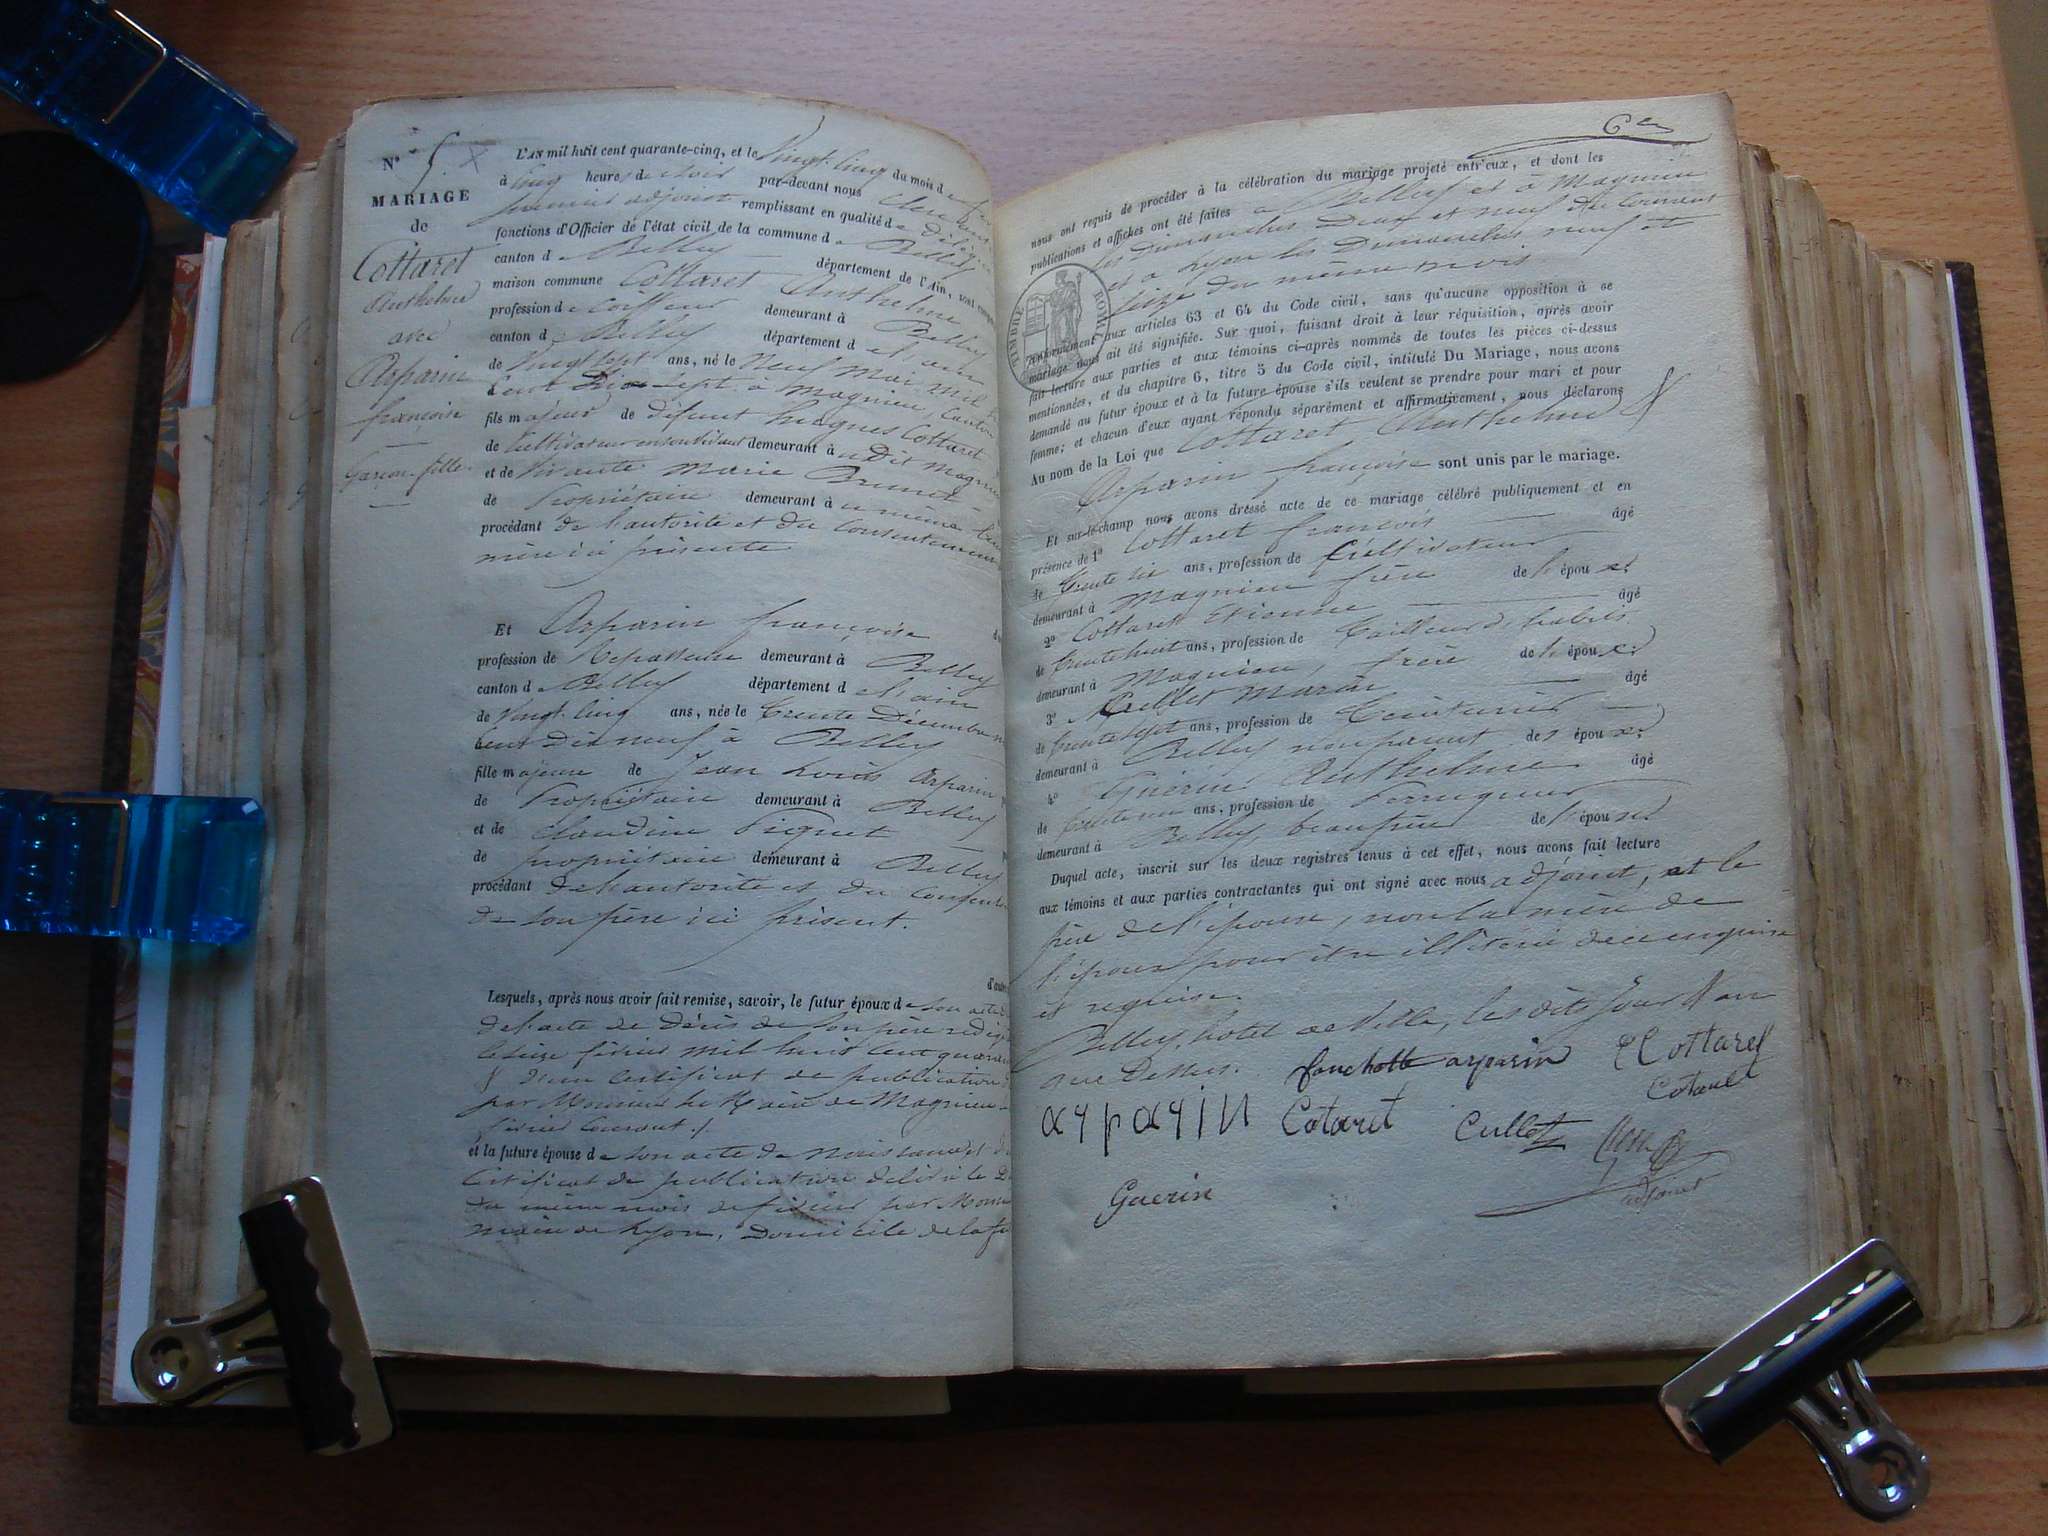 N° 5
MARIAGE
de
Cottaret
Anthelme
avec
Arparin
françoise
Garçon-fille
L'AN mil huit cent quarante-cinq, et le vingt-cinq du mois de
à cinq heures du soir par-devant nous
premier adjoint remplissant en qualité de délégué
fonctions d'Officier de l'état civil de la commune de Belley
canton de Belley département de l'Ain, sont
maison commune Cottaret Anthelme
profession de coiffeur demeurant à Belley
canton de Belley département de l'ain
de vingt sept ans, né le neuf mai mil
cent dix-sept à Magnieu, canton
fils majeur de défunt hugues Cottaret
de Cultivateur en son vivant demeurant à udit Magnieu
et de vivante Marie Brunet
de Propriétaire demeurant à u même lieu
procédant de l'autorité et du Consentement
mère ici présente
Et Arparin françoise
profession de Repasseuse demeurant à Belley
canton de Belley département de l'ain
de vingt-cinq ans, née le trente Décembre
cent dix neuf à Belley
fille majeure de Jean Louis Arparin
de Propriétaire demeurant à Belley
et de Claudine Piquet
de propriétaire demeurant à Belley
procédant de l'autorité et du
de son père ici présent.
Lesquels, après nous avoir fait remise, savoir, le futur époux de son acte
de l'acte de décès de son père
le seize février mil huit cent
& d'un certificat de publication
par Monsieur le Maire de Magnieu
février courant./.
et la future épouse de son acte de naissance
Certificat de publication délivré le
du même mois de février par
maire de Lyon, Domicile de la
6
nous ont requis de procéder à la célébration du mariage projeté entr'eux, et dont les
publications et affiches ont été faites à Belley et à Magnieu
les Dimanches Deux et neuf du Courrant
et à Lyon les Dimanches neuf et
seize du même mois
TIMBRE ROYAL
conformément aux articles 63 et 64 du Code civil, sans qu'aucune opposition à ce
mariage nous ait été signifiée. Sur quoi, faisant droit à leur réquisition, après avoir
fait lecture aux parties et aux témoins ci-après nommés de toutes les pièces ci-dessus
mentionnées, et du chapitre 6, titre 5 du Code civil, intitulé Du Mariage, nous avons
demandé au futur époux et à la future épouse s'ils veulent se prendre pour mari et pour
femme; et chacun d'eux ayant répondu séparément et affirmativement, nous déclarons
Au nom de la Loi que Cottaret Anthelme &
Arparin françoise sont unis par le mariage.
Et sur-le-champ nous avons dressé acte de ce mariage célébré publiquement et en
présence de 1° Cottaret françois âgé
de trente six ans, profession de Cultivateur
demeurant à Magnieu frère de l'époux.
2° Cottaret Etienne âgé
de trente huit ans, profession de tailleur d'habits
demeurant à Magnieu, frère de l'époux.
3° Marin âgé
de trente sept ans, profession de
demeurant à Belley non parent des époux.
4° Guérin Anthelme âgé
de trente un ans, profession de Perruquier
demeurant à Belley beaufrère de l'époux
Duquel acte, inscrit sur les deux registres tenus à cet effet, nous avons fait lecture
aux témoins et aux parties contractantes qui ont signé avec nous adjoint, et le
père de l'épouse, non la mère de
l'époux pour être illitérée de ce enquise
et requise.
Belley, hotel de Ville, les dits jour & an
que Dessus.
fanchette arparin
E Cottaret
arparin
Cotaret
Cullet
Cotaret
adjoint
Guerin